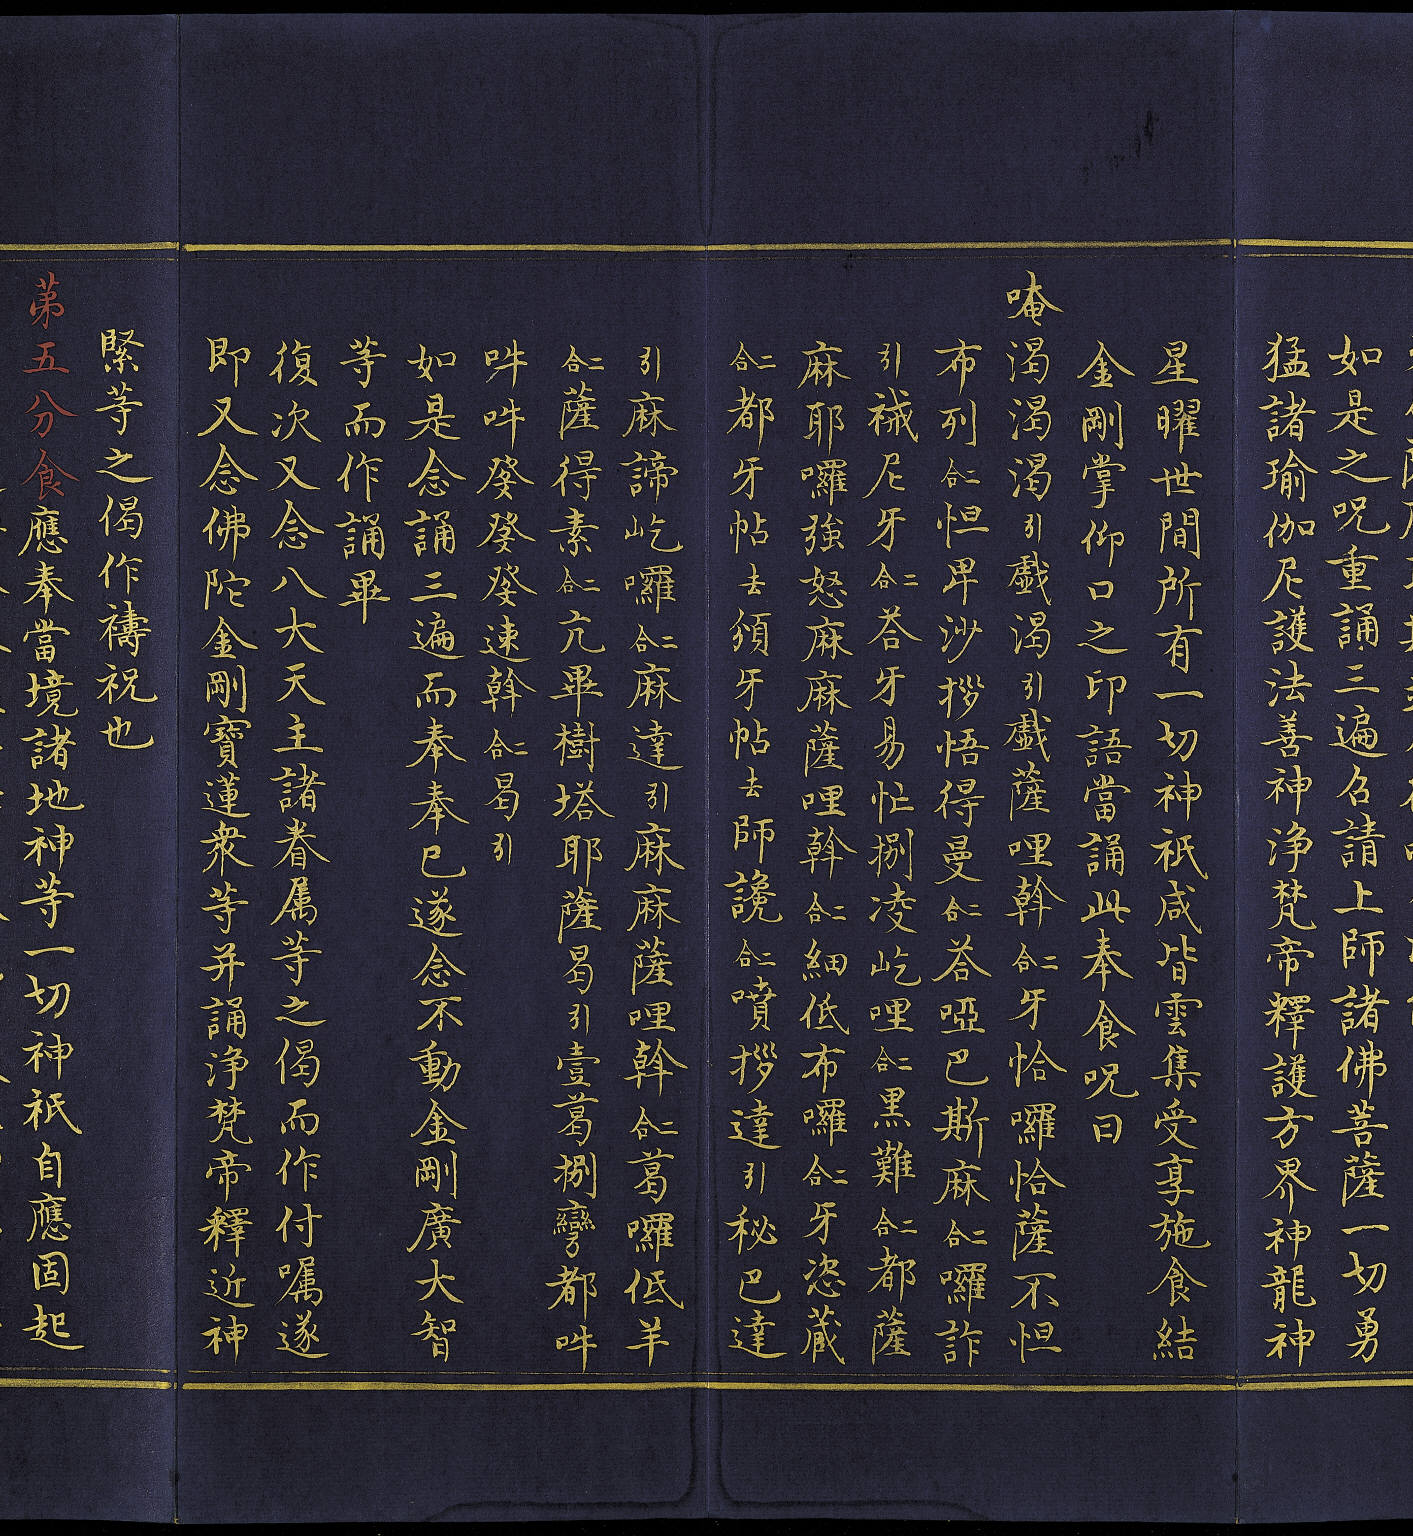 如是之呪重誦三遍召請上師諸佛菩薩一切勇
猛諸瑜伽尼護法善神淨梵帝釋護方界神龍神
星曜世間所有一切神祇咸皆雲集受享施食結
金剛掌仰口之印語當誦此奉食呪曰
唵渴渴渴引戲渴引戲薩哩斡二合牙恰囉恰薩不怛
布列二合怛畢沙拶悟得曼二合荅啞巴斯麻二合囉詐
引襪尼牙二合荅牙易忙捌凌屹哩二合黑難二合都薩
麻耶囉強怒麻麻薩哩斡二合細低布囉二合牙恣葳
二合都牙帖去頞牙帖去師讒二合噴拶達引秘巴達
引麻諦屹囉二合麻達引麻麻薩哩斡二合葛囉低羊
二合薩得素二合亢畢樹塔耶薩曷引壹葛捌彎都吽
吽吽發發發速斡二合曷引
如是念誦三遍而奉奉已遂念不動金剛廣大智
等而作誦畢
復次又念八大天主諸眷属等之偈而作付囑遂
即又念佛陀金剛寶蓮衆等并誦淨梵帝釋近神
緊等之偈作禱祝也
第五分食應奉當境諸地神等一切神祇自應固起